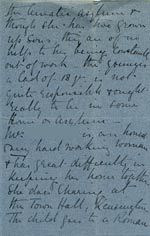 the lunatic asylum &
though she has two grown
up sons they are of no
help to her being constantly
out of work. The younger
a lad of 18 yrs is not
quite responsible & ought
really to be in some
Home or Asylum —
Mrs is an honest
very hard working woman
& has great difficulty in
keeping her home together
She does Charing at
the Town Hall, Kensington
The child goes to a Roman